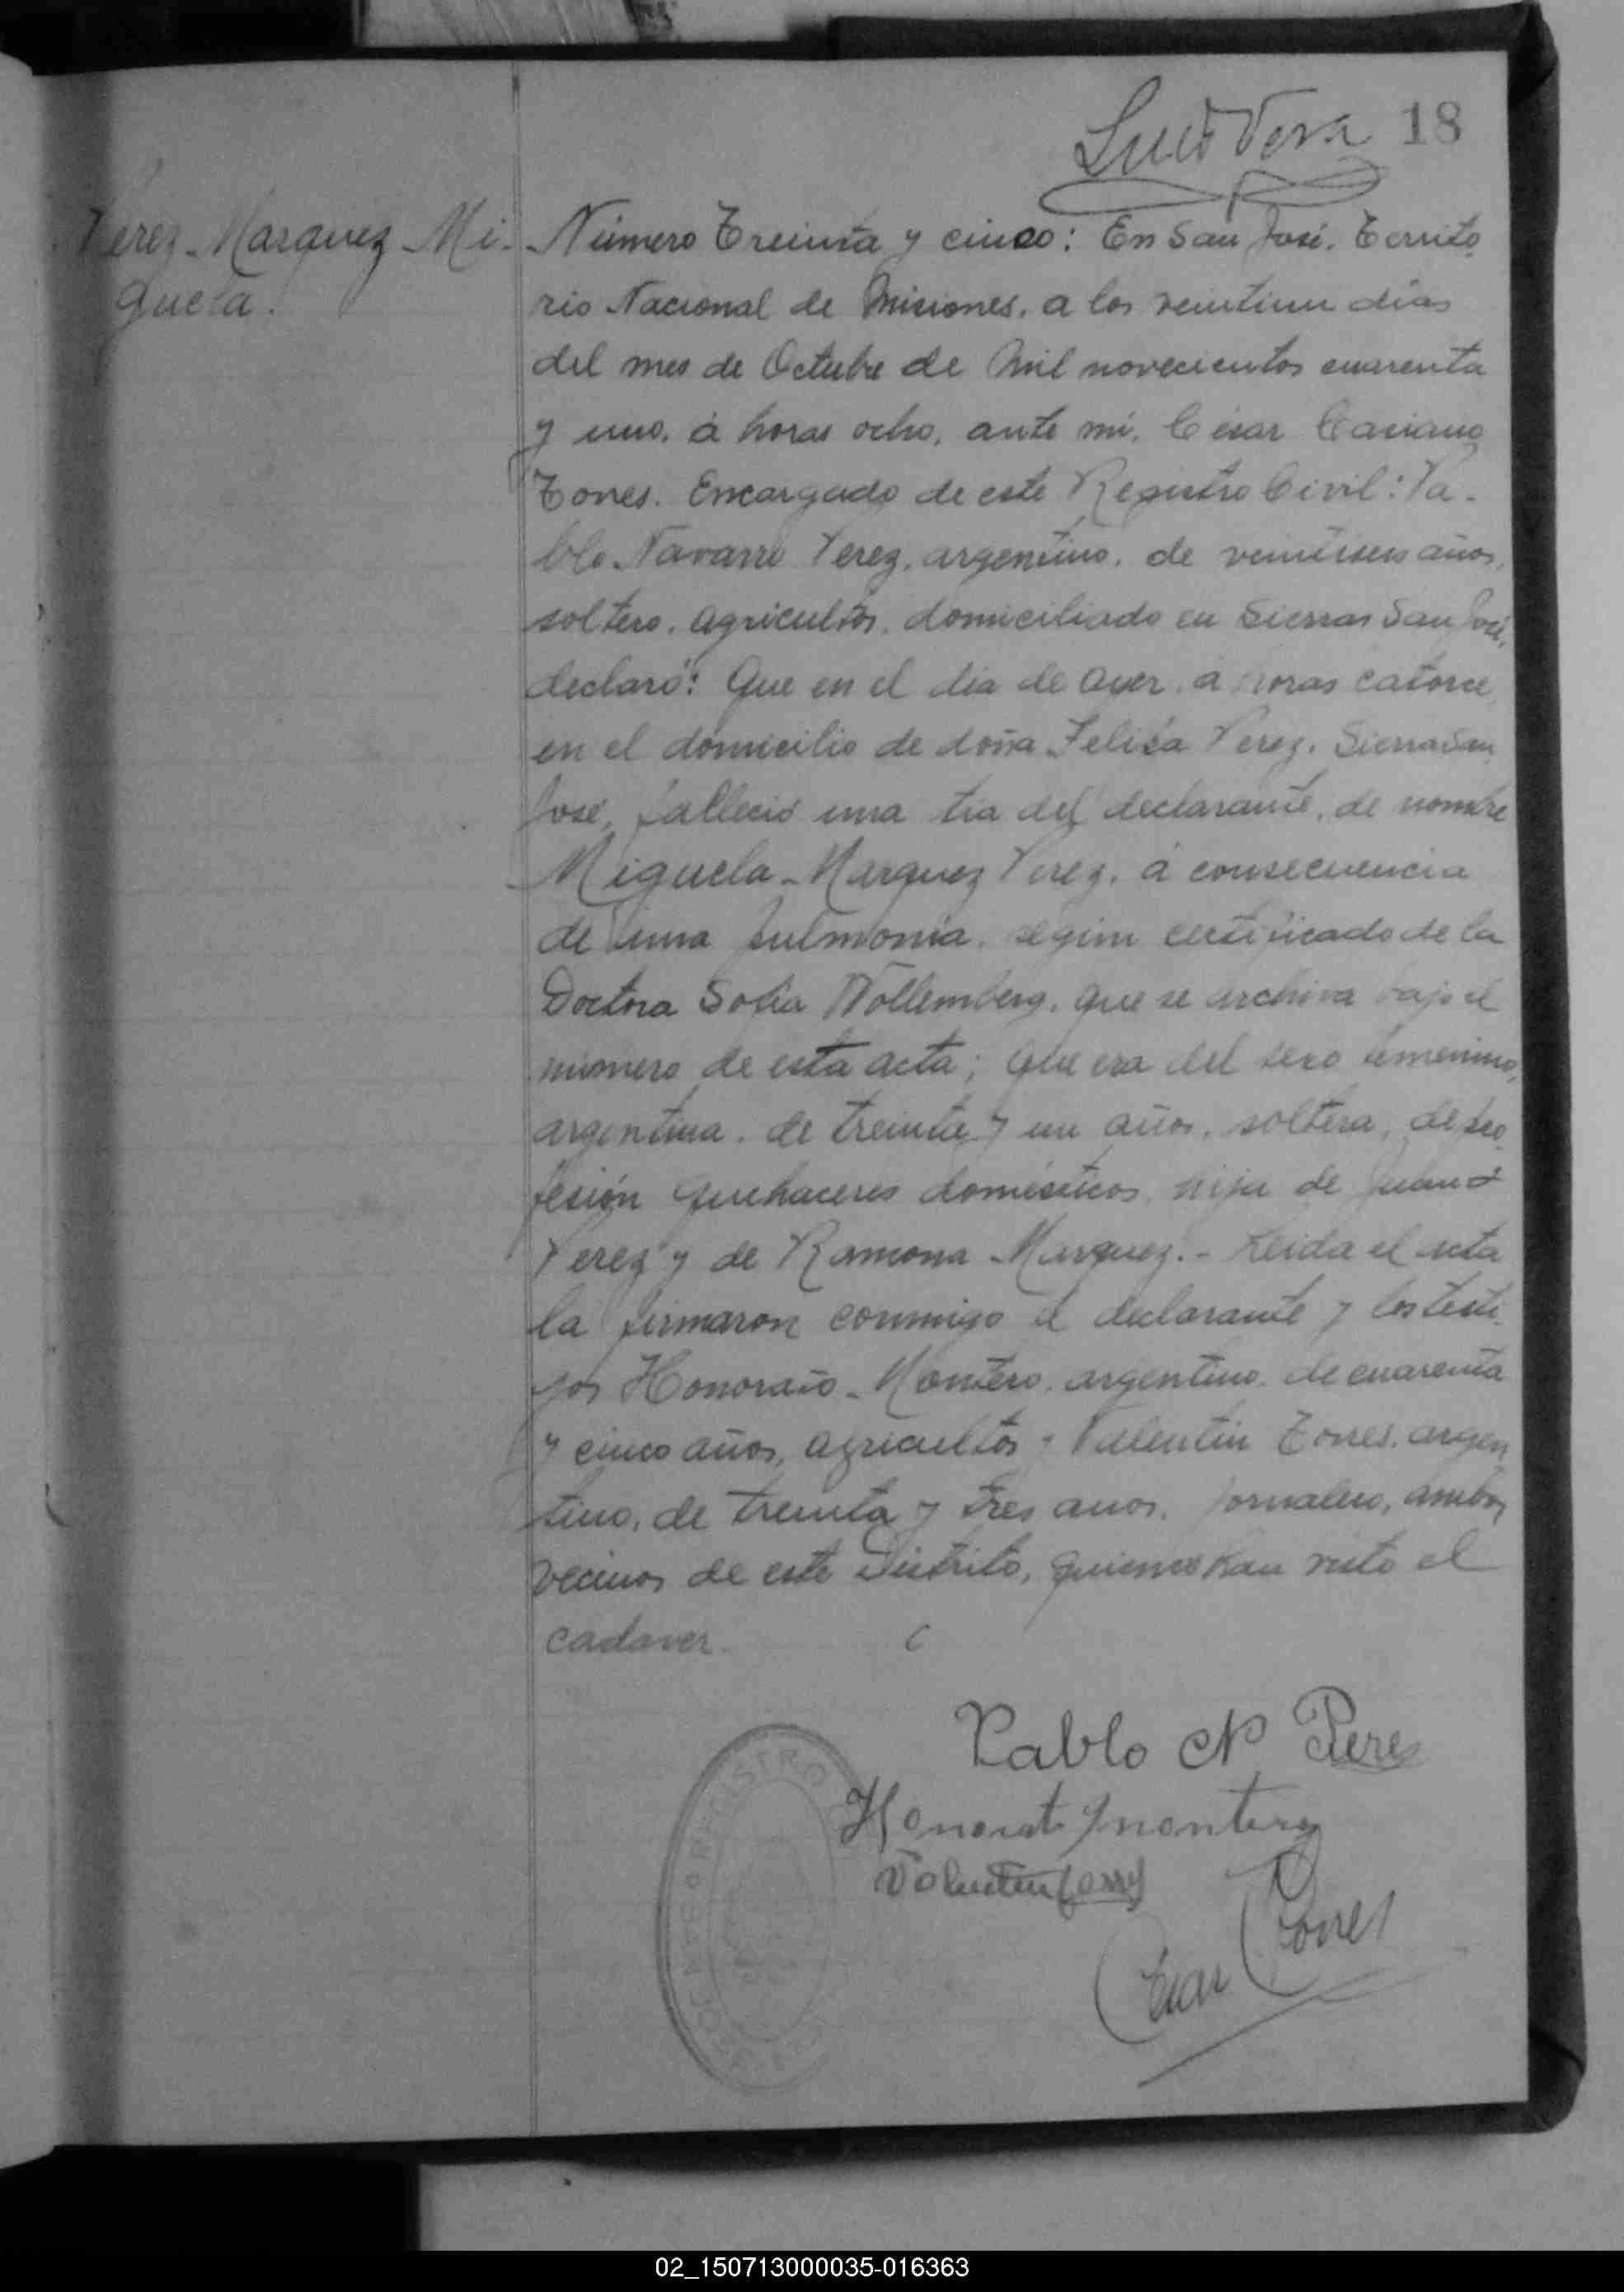 Lucio Vera 18
Perez Marquez Mi-
guela.
Número Treinta y cinco: En San José, Territo-
rio Nacional de Misiones, a los veintiun dias
del mes de Octubre de mil novecientos cuarenta
y uno, á horas ocho, ante mí, César Casiano
Torres, Encargado de este Registro Civil: Pa-
blo Navarro Perez, argentino, de veintiseis años,
soltero, agricultor, domiciliado en Sierras San José,
declaró: Que en el dia de ayer, á horas catorce,
en el domicilio de doña Felisa Perez, Sierra San
José, falleció una tia del declarante, de nombre
Miguela Marquez Perez, á consecuencia
de una pulmonia, según certificado de la
Doctora Sofia Wollemberg, que se archiva bajo el
número de esta acta; que era del sexo femenino,
argentina, de treinta y un años, soltera, de pro-
fesión quehaceres domésticos, hija de Juan
Perez y de Ramona Marquez.- Leida el acta
la firmaron conmigo el declarante y los testi-
gos Honorato Montero, argentino, de cuarenta
y cinco años, agricultor y Valentin Torres, argen-
tino, de treinta y tres años, jornalero, ambos
vecinos de este Distrito, quienes han visto el
cadaver.
Pablo N Peres
Honorato Montero
Valentin Torres
César C Torres
REGISTRO
02_150713000035-016363